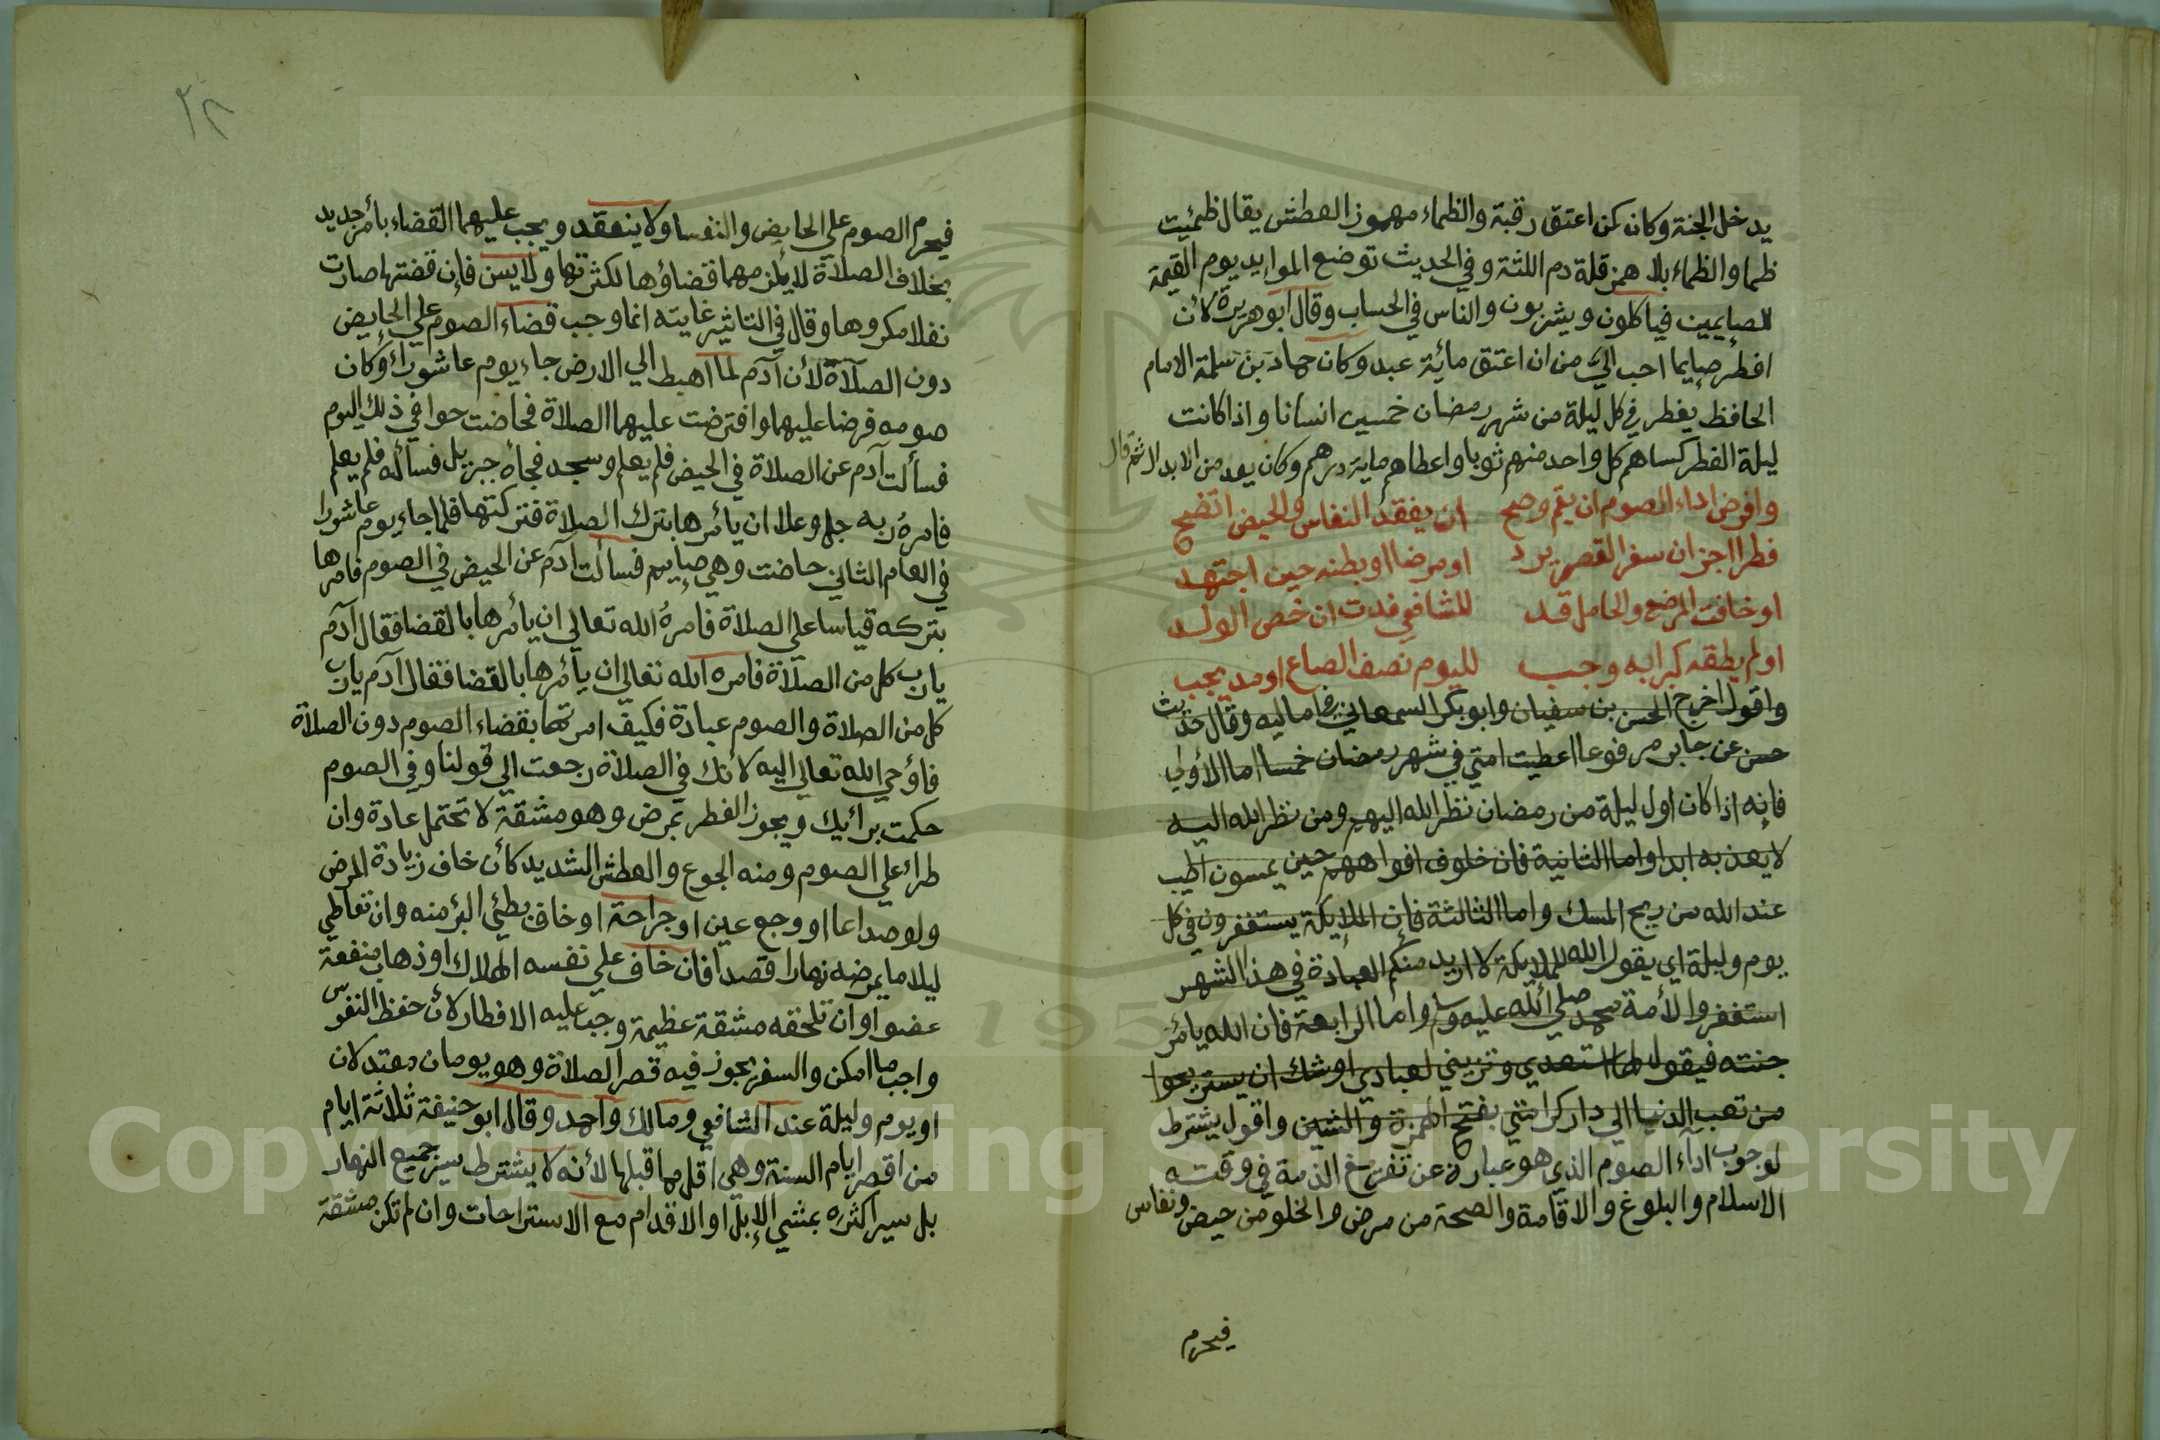 يدخل الجنة وكان كمن اعتق رقبة والظماء مهموز العطش يقال ظمئيت
ظما والظماء بلا همز قلة دم اللثة وفي الحديث توضع الموايد يوم القيمة
للصايمين فياكلون ويشربون والناس في الحساب وقال ابو هريرة لأن
افطر صايما احب الي من ان اعتق مائة عبد وكان حماد بن سلمة الامام
الحافظ يفطر في كل ليلة من شهر رمضان خمسين انسانا واذا كانت
ليلة الفطر كساهم كل واحد منهم ثوبا واعطاهم ماية درهم وكان يعد من الابدال ثم قال
وافرض اداء الصوم ان يقم وصح ان يفقد النفاس والحيض اتضح
فطرا اجز ان سفر القصر يرد او مرضا او بطنه حين اجتهد
او خافت المرضع والحامل قد للشافعي فدت ان خص الولد
او لم يطقه كبرا به وجب لليوم نصف الصاع او مد يجب
واقول اخرج الحسن بن سفيان وابو بكر السمعاني في اماليه وقال حديث
حسن عن جابر مرفوعا اعطيت امتي في شهر رمضان خمسا اما الأولى
فإنه اذا كان اول ليلة من رمضان نظر الله اليهم ومن نظر الله اليه
لا يعذبه ابدا واما الثانية فان خلوف افواههم حين يمسون اطيب
عند الله من ريح المسك واما الثالثة فإن الملايكة يستغفرون في كل
يوم وليلة اي يقول الله للملايكة لا اريد منكم العبادة في هذا الشهر
استغفروا لأمة محمد صلي الله عليه وسلم واما الرابعة فان الله يأمر
جنته فيقول لها استعدي وتزيني لعبادي اوشك ان يستريحوا
من تعب الدنيا الي دار كرامتي بفتح الهمزة والشين واقول يشترط
لوجوب اداء الصوم الذي هو عبارة عن تفريغ الذمة في وقته
الاسلام والبلوغ والاقامة والصحة من مرض والخلو من حيض ونفاس
فيحرم
٢٨
فيحرم الصوم علي الحايض والنفسا ولا ينعقد ويجب عليهما القضاء بأمر جديد
بخلاف الصلاة لا يلزمهما قضاؤها لكثرتها ولا يسن فإن قضتها صارت
نفلا مكروها وقال في التاثير غايته انما وجب قضاء الصوم علي الحايض
دون الصلاة لأن آدم لما اهبط الي الارض جاء يوم عاشوراء وكان
صومه فرضا عليهما وافترضت عليهما الصلاة فحاضت حوا في ذلك اليوم
فسألت آدم عن الصلاة في الحيض فلم يعلم وسجد فجأه جبريل فسأله فلم يعلم
فامره ربه جل وعلا ان يأمرها بترك الصلاة فتركتها فلما جاء يوم عاشورا
في العام الثاني حاضت وهي صايم فسألت آدم عن الحيض في الصوم فامرها
بتركه قياسا علي الصلاة فامره الله تعالي ان يأمرها بالقضا فقال آدم
يا رب كل من الصلاة فامره الله تعالي ان يأمرها بالقضا فقال آدم يا رب
كل من الصلاة والصوم عبادة فكيف امرتها بقضاء الصوم دون الصلاة
فاؤحي الله تعالي اليه لأنك في الصلاة رجعت الي قولنا وفي الصوم
حكمت برأيك ويجوز الفطر بمرض وهو مشقة لا تحتمل عادة وان
طراء علي الصوم ومنه الجوع والعطش الشديد كأن خاف زيادة المرض
ولو صداعا او وجع عين او جراحة او خاف بطئي البرؤ منه وان تعاطي
ليلا ما يمرضه نهارا قصدا فان خاف علي نفسه الهلاك او ذهاب منفعة
عضو او ان تلحقه مشقة عظيمة وجب عليه الافطار لأن حفظ النفوس
واجب ما امكن والسفر يجوز فيه قصر الصلاة وهو يومان معتدلان
او يوم وليلة عند الشافعي ومالك واحمد وقال ابو حنيفة ثلاثة ايام
من اقصر ايام السنة وهي اقل مما قبلها لأنه لا يشترط سير جميع النهار
بل سير اكثره بمشي الإبل او الاقدام مع الاستراحات وان لم تكن مشقة
Copyright © King Saud University
1957